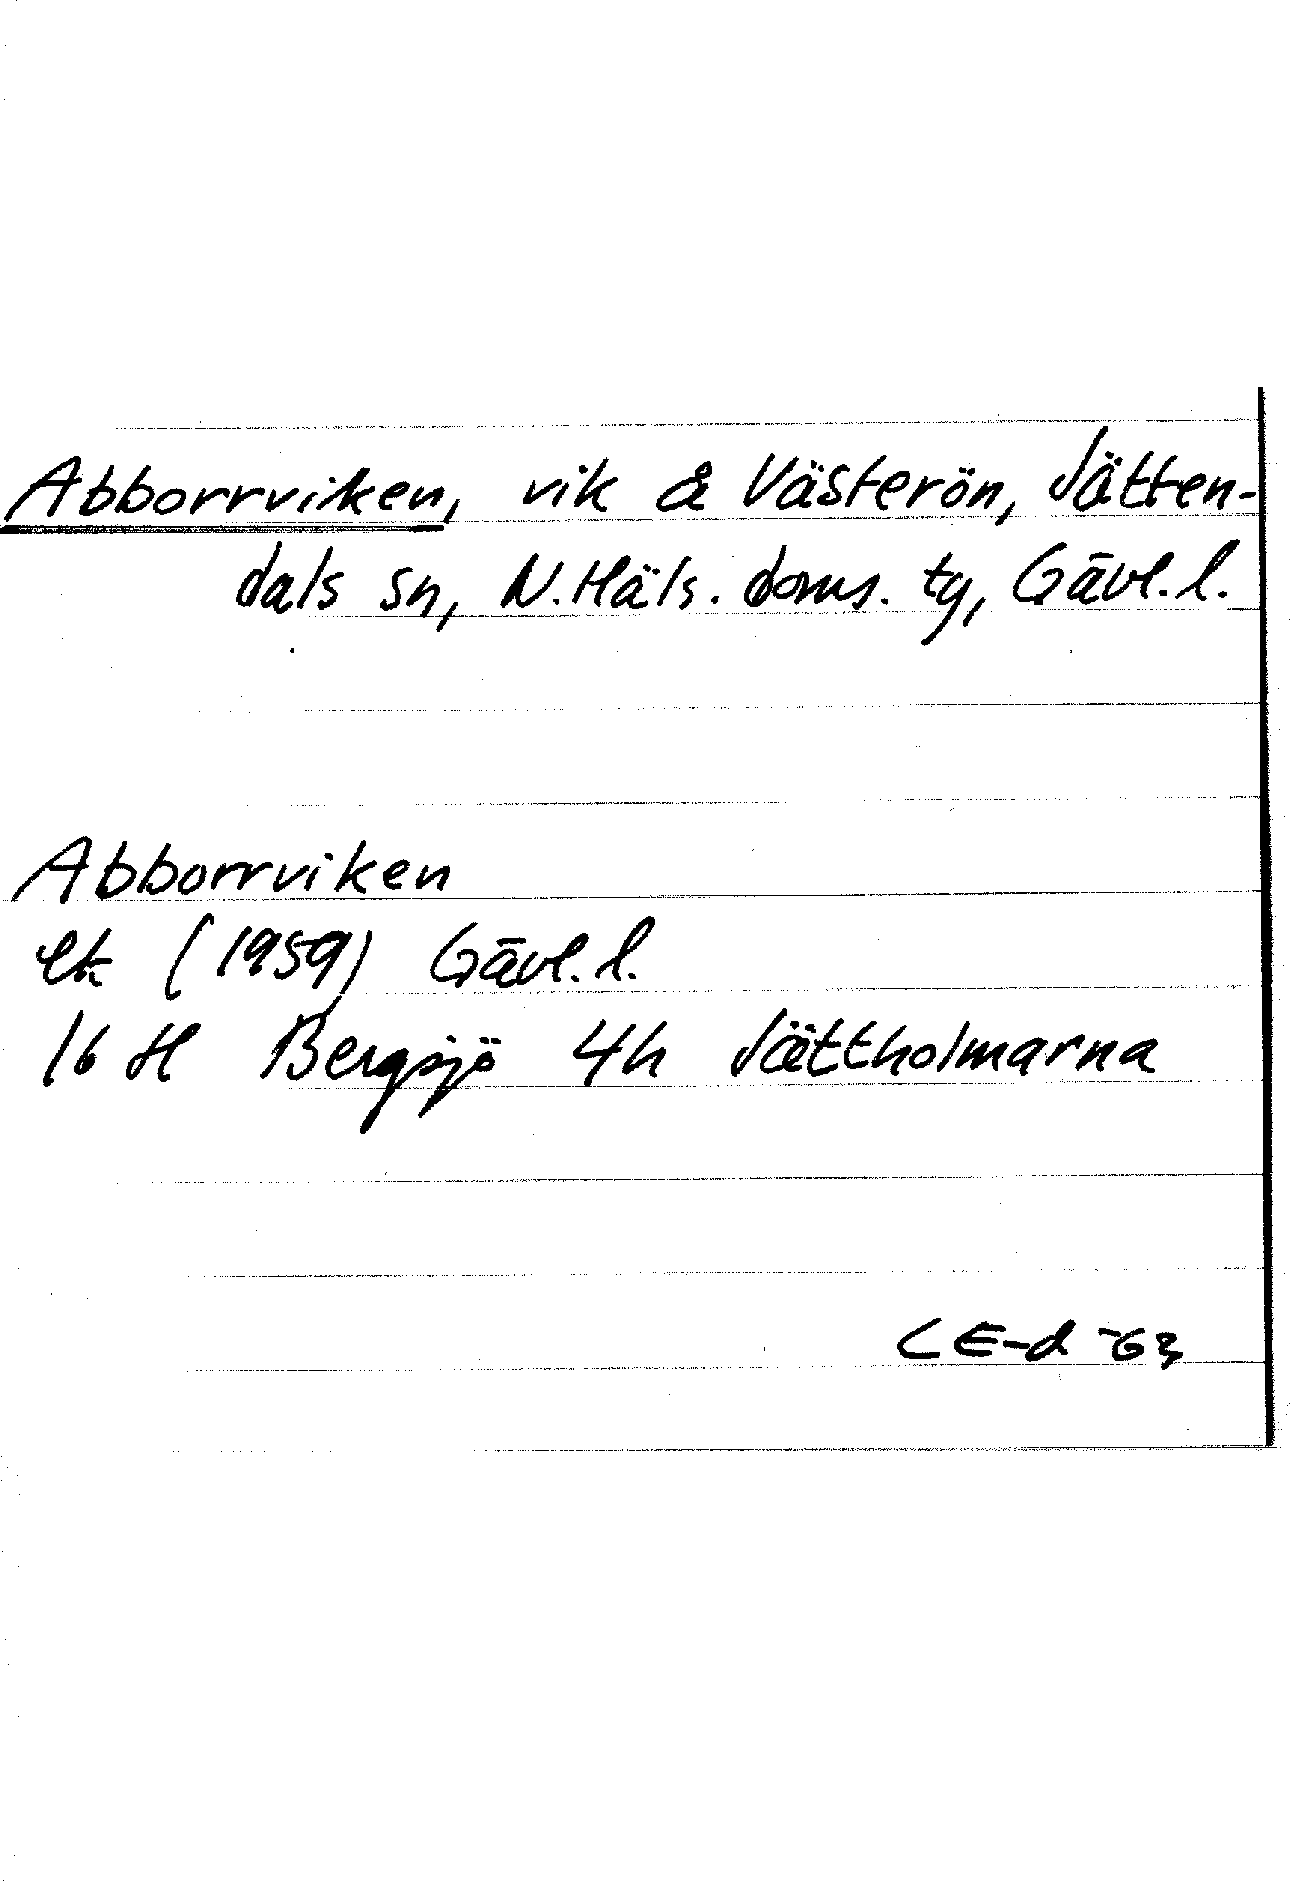 Abborrviken, vik å Västerön, Jätten-
dals sn, N. Häls. doms. tg, Gävl. l.
Abborrviken
ek (1959) Gävl. l.
16 H Bergsjö 4h Jättholmarna
C E-d -63